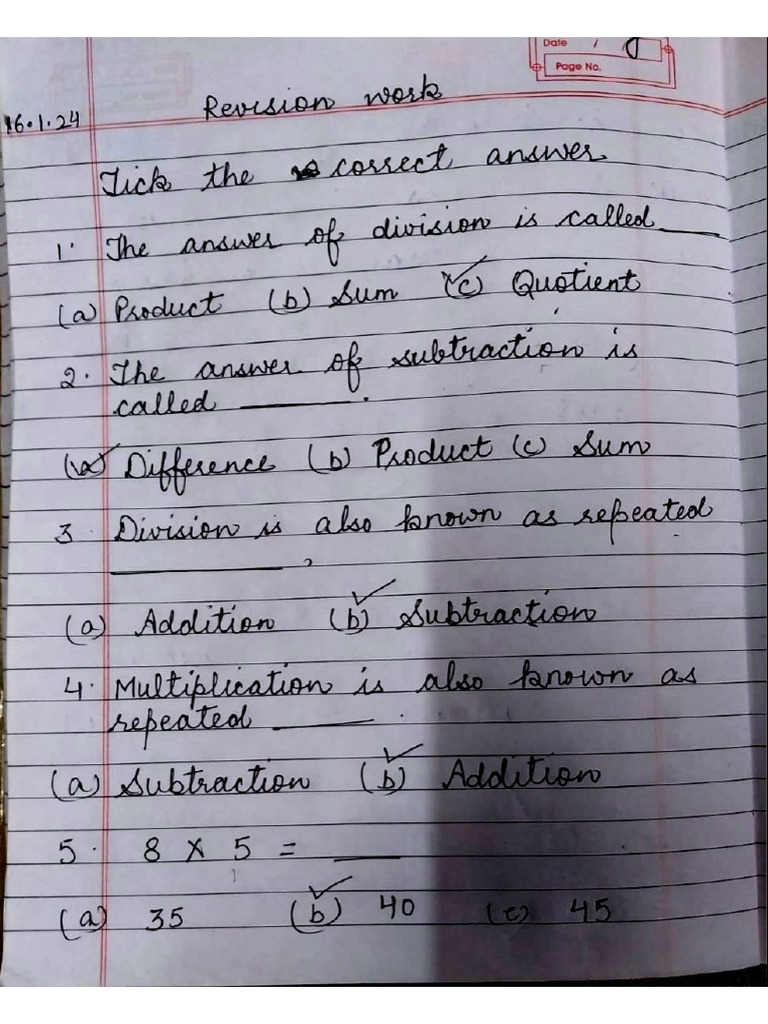 Date
Page No.
16.1.24 Revision work
Tick the correct answer
1. The answer of division is called ___
(a) Product (b) Sum (c) Quotient
2. The answer of subtraction is
called ______.
(a) Difference (b) Product (c) Sum
3 Division is also known as repeated
______,
(a) Addition (b) Subtraction
4. Multiplication is also known as
repeated ______.
(a) Subtraction (b) Addition
5. 8 × 5 = ___
(a) 35 (b) 40 (c) 45